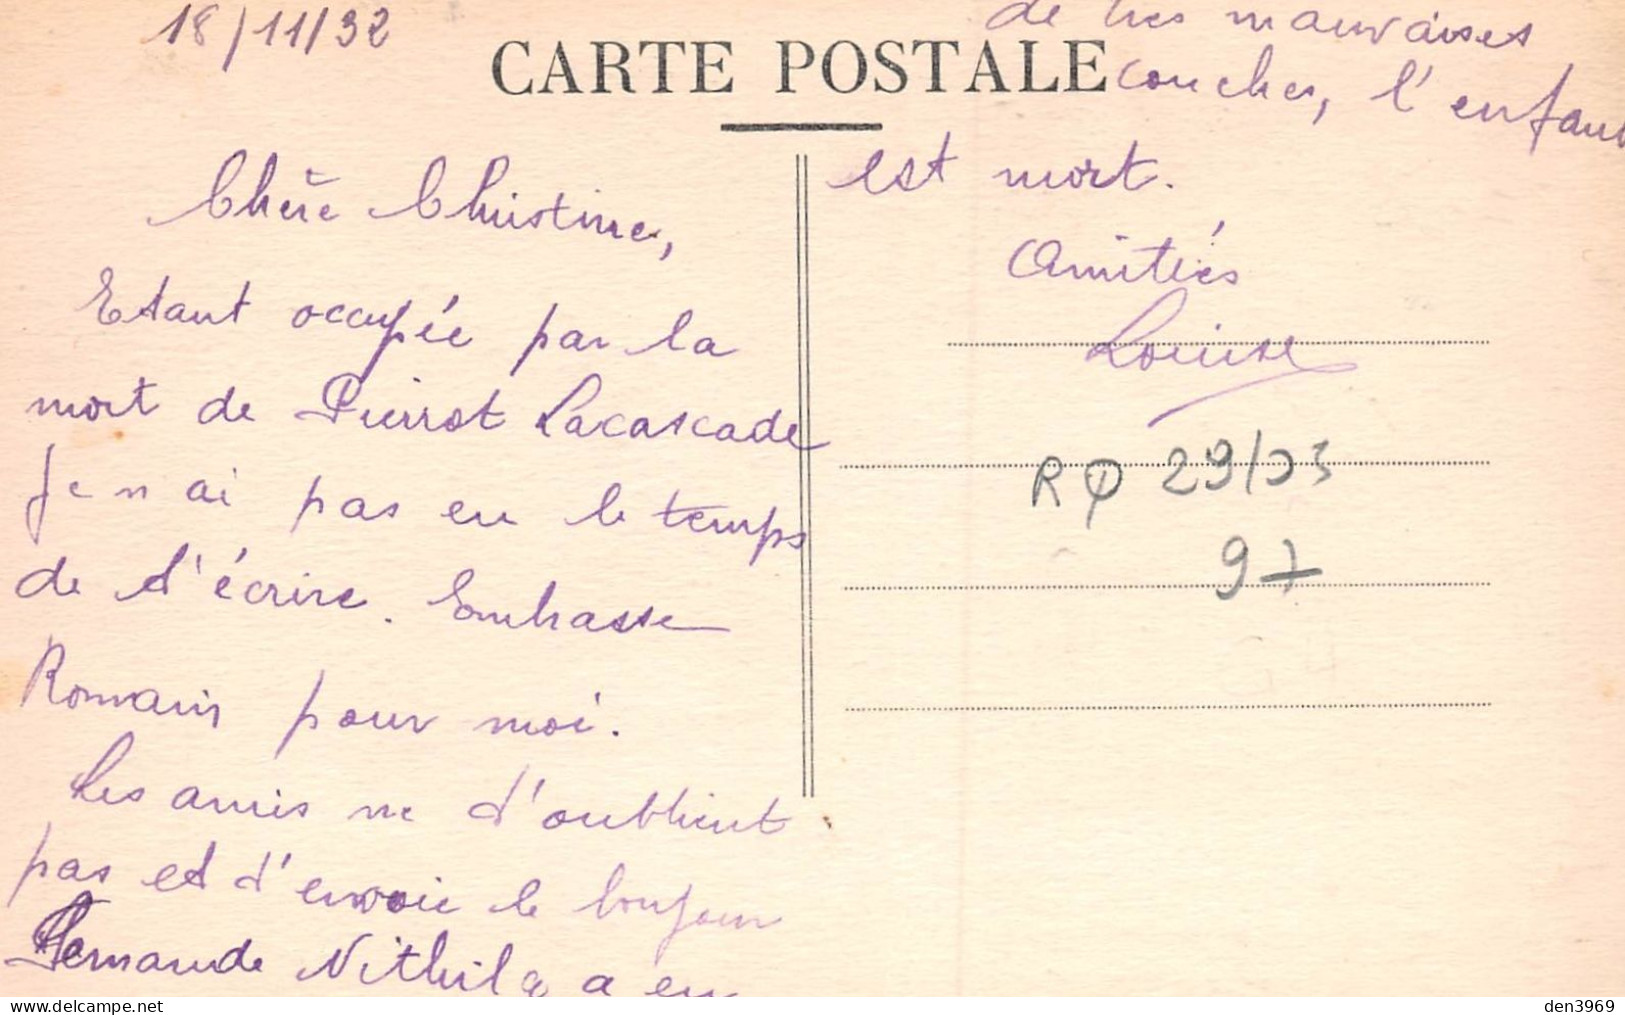 18/11/32
CARTE POSTALE
Chère Christine,
Etant occupée par la
mort de Pierrot Lacascade
Je n ai pas eu le temps
de t'écrire. Embrasse
Romain pour moi.
Les amis ne t'oublient
pas et t'envoie le bonjour
a eu
de tres mauvaises
couches, l'enfant
est mort.
Amitiés
Louise
29/03
97
den3969